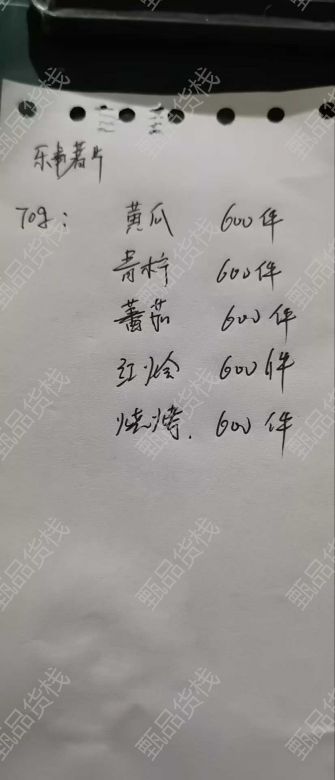 乐事薯片
70g： 黄瓜 600件
青柠 600件
蕃茄 600件
红烩 600件
烧烤. 600件
甄品货栈